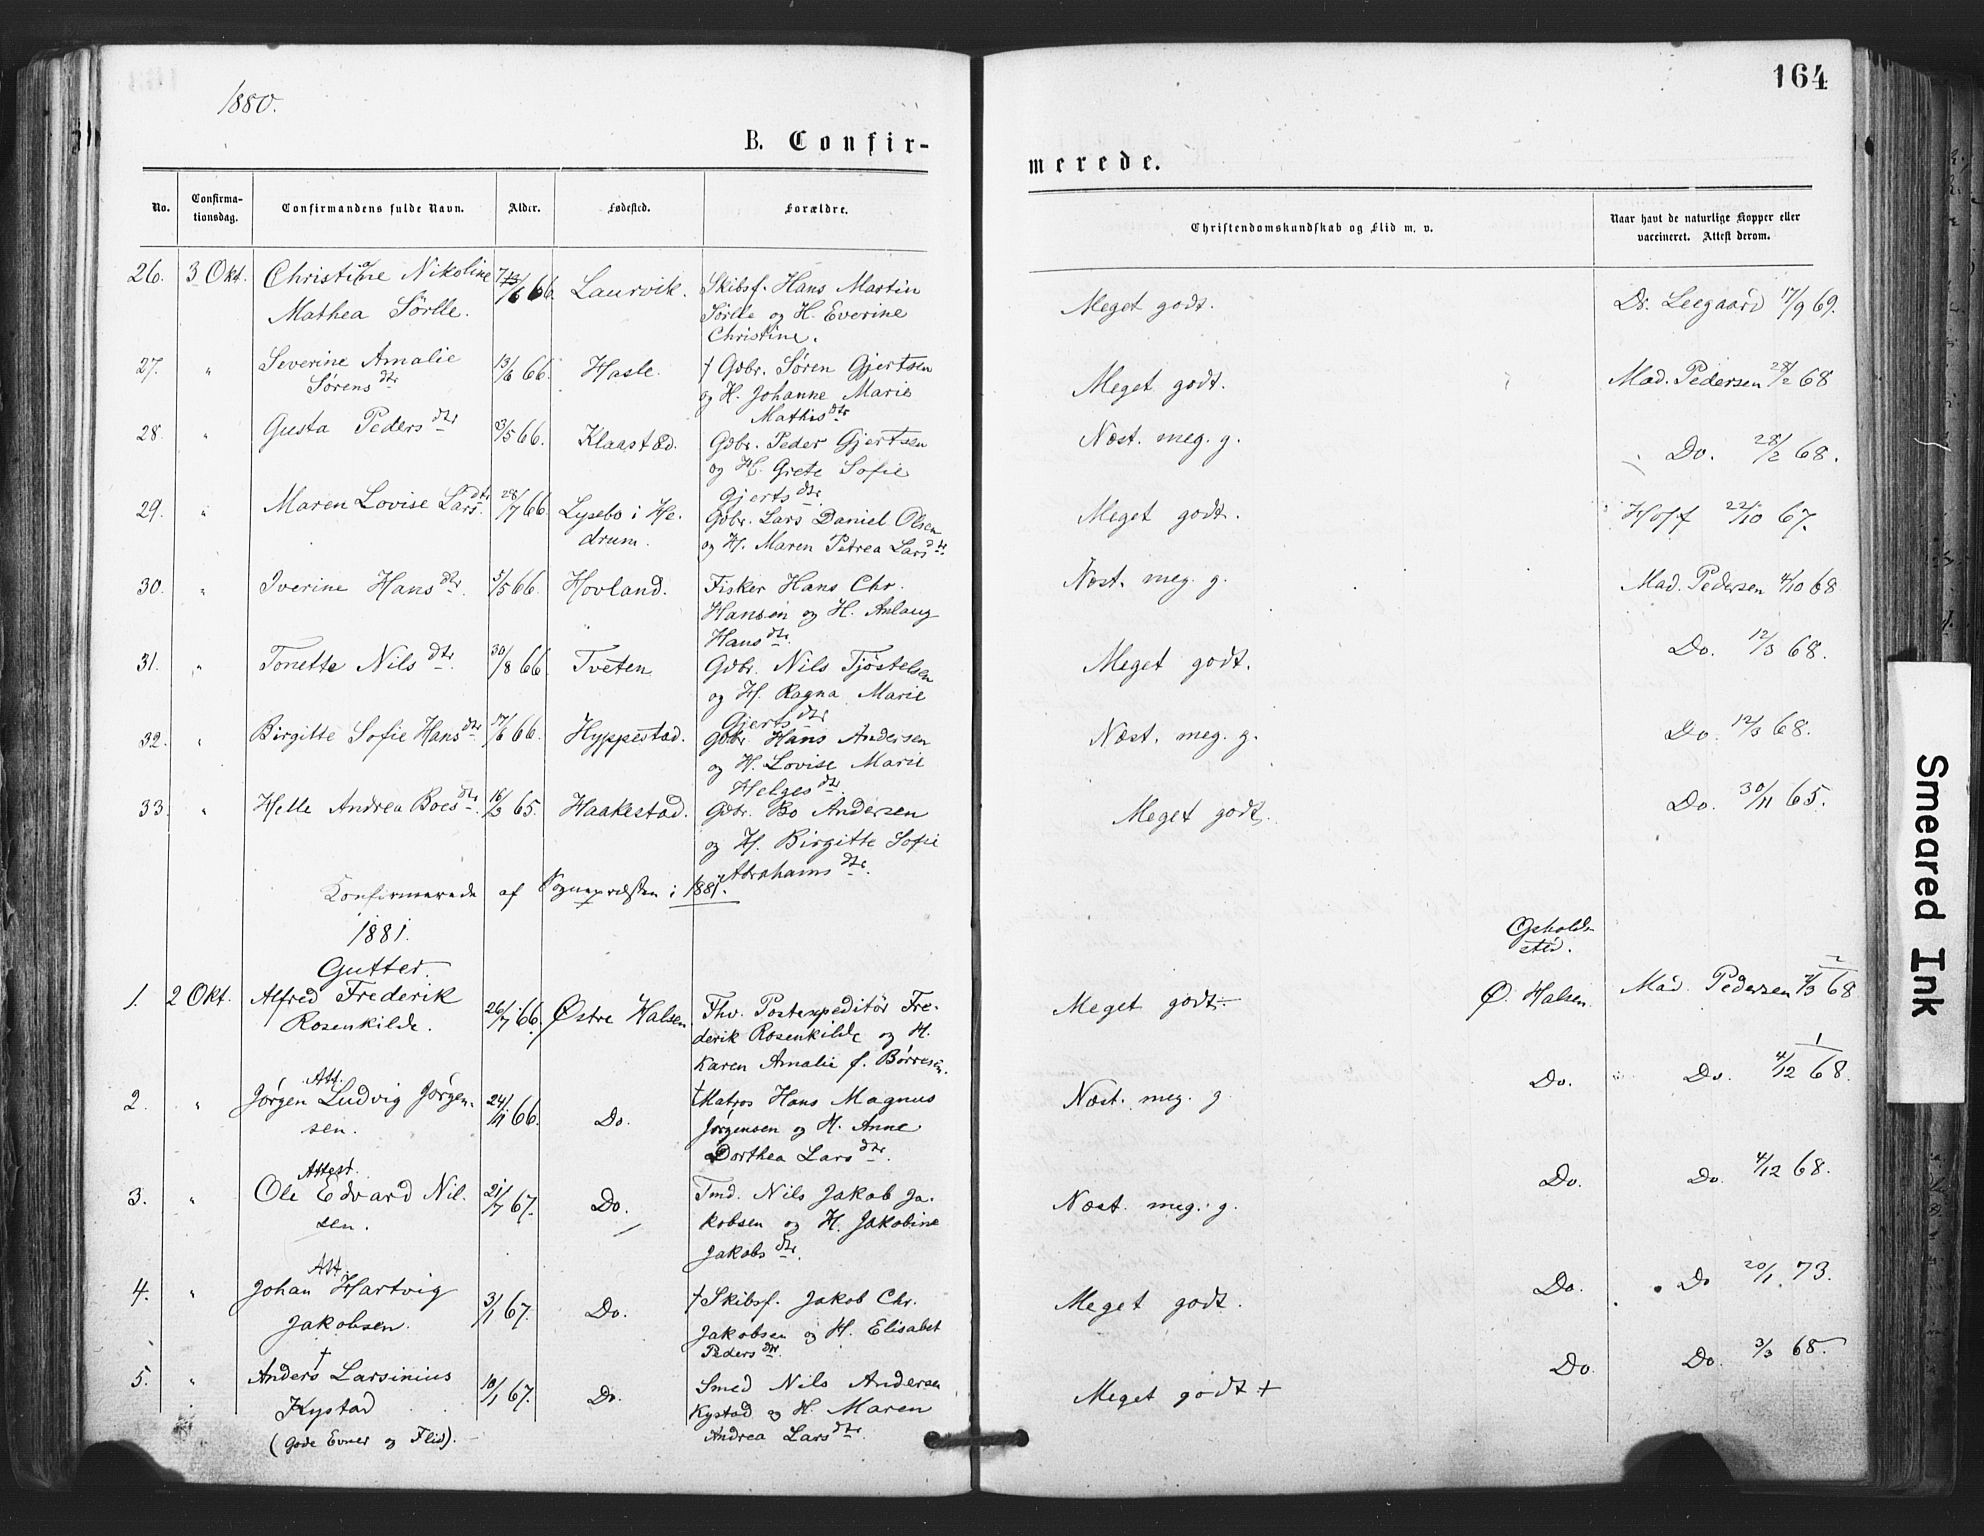 1880.
164
B. Confir-
merede.
No.
Confirma-
tionsdag.
Confirmandens fulde Navn.
Alder.
Fødested.
Forældre.
Christendomskundskab og Flid m. v.
Naar havt de naturlige Kopper eller
vaccineret. Attest derom.
26. 3 Okt. Nikoline 66. Laurvik. Skibsf. Hans Martin
Mathea Sörlle. Sörlle og H. Everine
Christine.
Meget godt. Dr. Leegaard 17/9 69.
27. " Severine Amalie 13/6 66. Hasle. † Gdbr. Søren Gjertsen
Sørensdtr og H. Johanne Marie
Mathisdtr
Meget godt. Mad. Pedersen 28/2 68
28. " Gusta Pedersdtr 3/5 66. Klaastad. Gdbr. Peder Gjertsen
og H. Grete Sofie
Gjertsdtr
Næst. meg. g. Do. 28/2 68.
29. " Maren Lovise Larsdtr 28/7 66 Lysebo i He- Gdbr. Lars Daniel Olsen
drum. og H. Maren Petrea Larsdtr
Meget godt. Hoff 22/10 67.
30. " Iverine Hansdtr. 5/5 66. Hovland. Fisker Hans Chr.
Hansen og H. Anlaug
Hansdtr.
Næst. meg. g. Mad. Pedersen 4/10 68
31. " Tonette Nilsdtr. 30/8 66 Tveten Gdbr. Nils Tjøstelsen
og H. Ragna Marie
Gjertsdtr
Meget godt. Do. 12/3 68.
32. " Birgitte Sofie Hansdtr 17/6 66. Hyppestad. Gdbr. Hans Andersen
og H. Lovise Marie
Helgesdtr.
Næst. meg. g. Do. 12/3 68.
33. " Helle Andrea Boesdtr. 16/3 65. Haakestad. Gdbr. Bo Andersen
og H. Birgitte Sofie
Abrahamsdtr.
Meget godt. Do. 30/11 65.
Konfirmerede af Sognepræsten i 1881.
1881.
Gutter.
Opholds-
sted.
1. 2 Okt. Alfred Frederik 26/7 66. Østre Halsen. Fhv. Postexpeditör Fre-
Rosenkilde. derik Rosenkilde og H.
Karen Amalie f. Börresen.
Meget godt Ø. Halsen. Mad. Pedersen 68
Att.
2. " Jørgen Ludvig Jørgen- 24/11 66. Do. † Matros Hans Magnus
sen. Jørgensen og H. Anne
Dorthea Larsdtr.
Næst. meg. g. Do. Do. 4/12 68.
Attest.
3. " Ole Edvard Nil- 21/7 67. Do. Tmd. Nils Jakob Ja-
sen. kobsen og H. Jakobine
Jakobsdtr.
Næst. meg. g. Do. Do. 4/12 68.
Att.
4. " Johan Hartvig 3/1 67. Do. † Skibsf. Jakob Chr.
Jakobsen. Jakobsen og H. Elisabet
Pedersdtr.
Meget godt. Do. Do 20/1. 73.
†
5. " Anders Larsinius 10/1 67. Do. Smed Nils Andersen
Kystad Kystad og H. Maren
(gode Evner og Flid). Andrea Larsdtr.
Meget godt + Do. Do. 3/3 68.
Smeared Ink